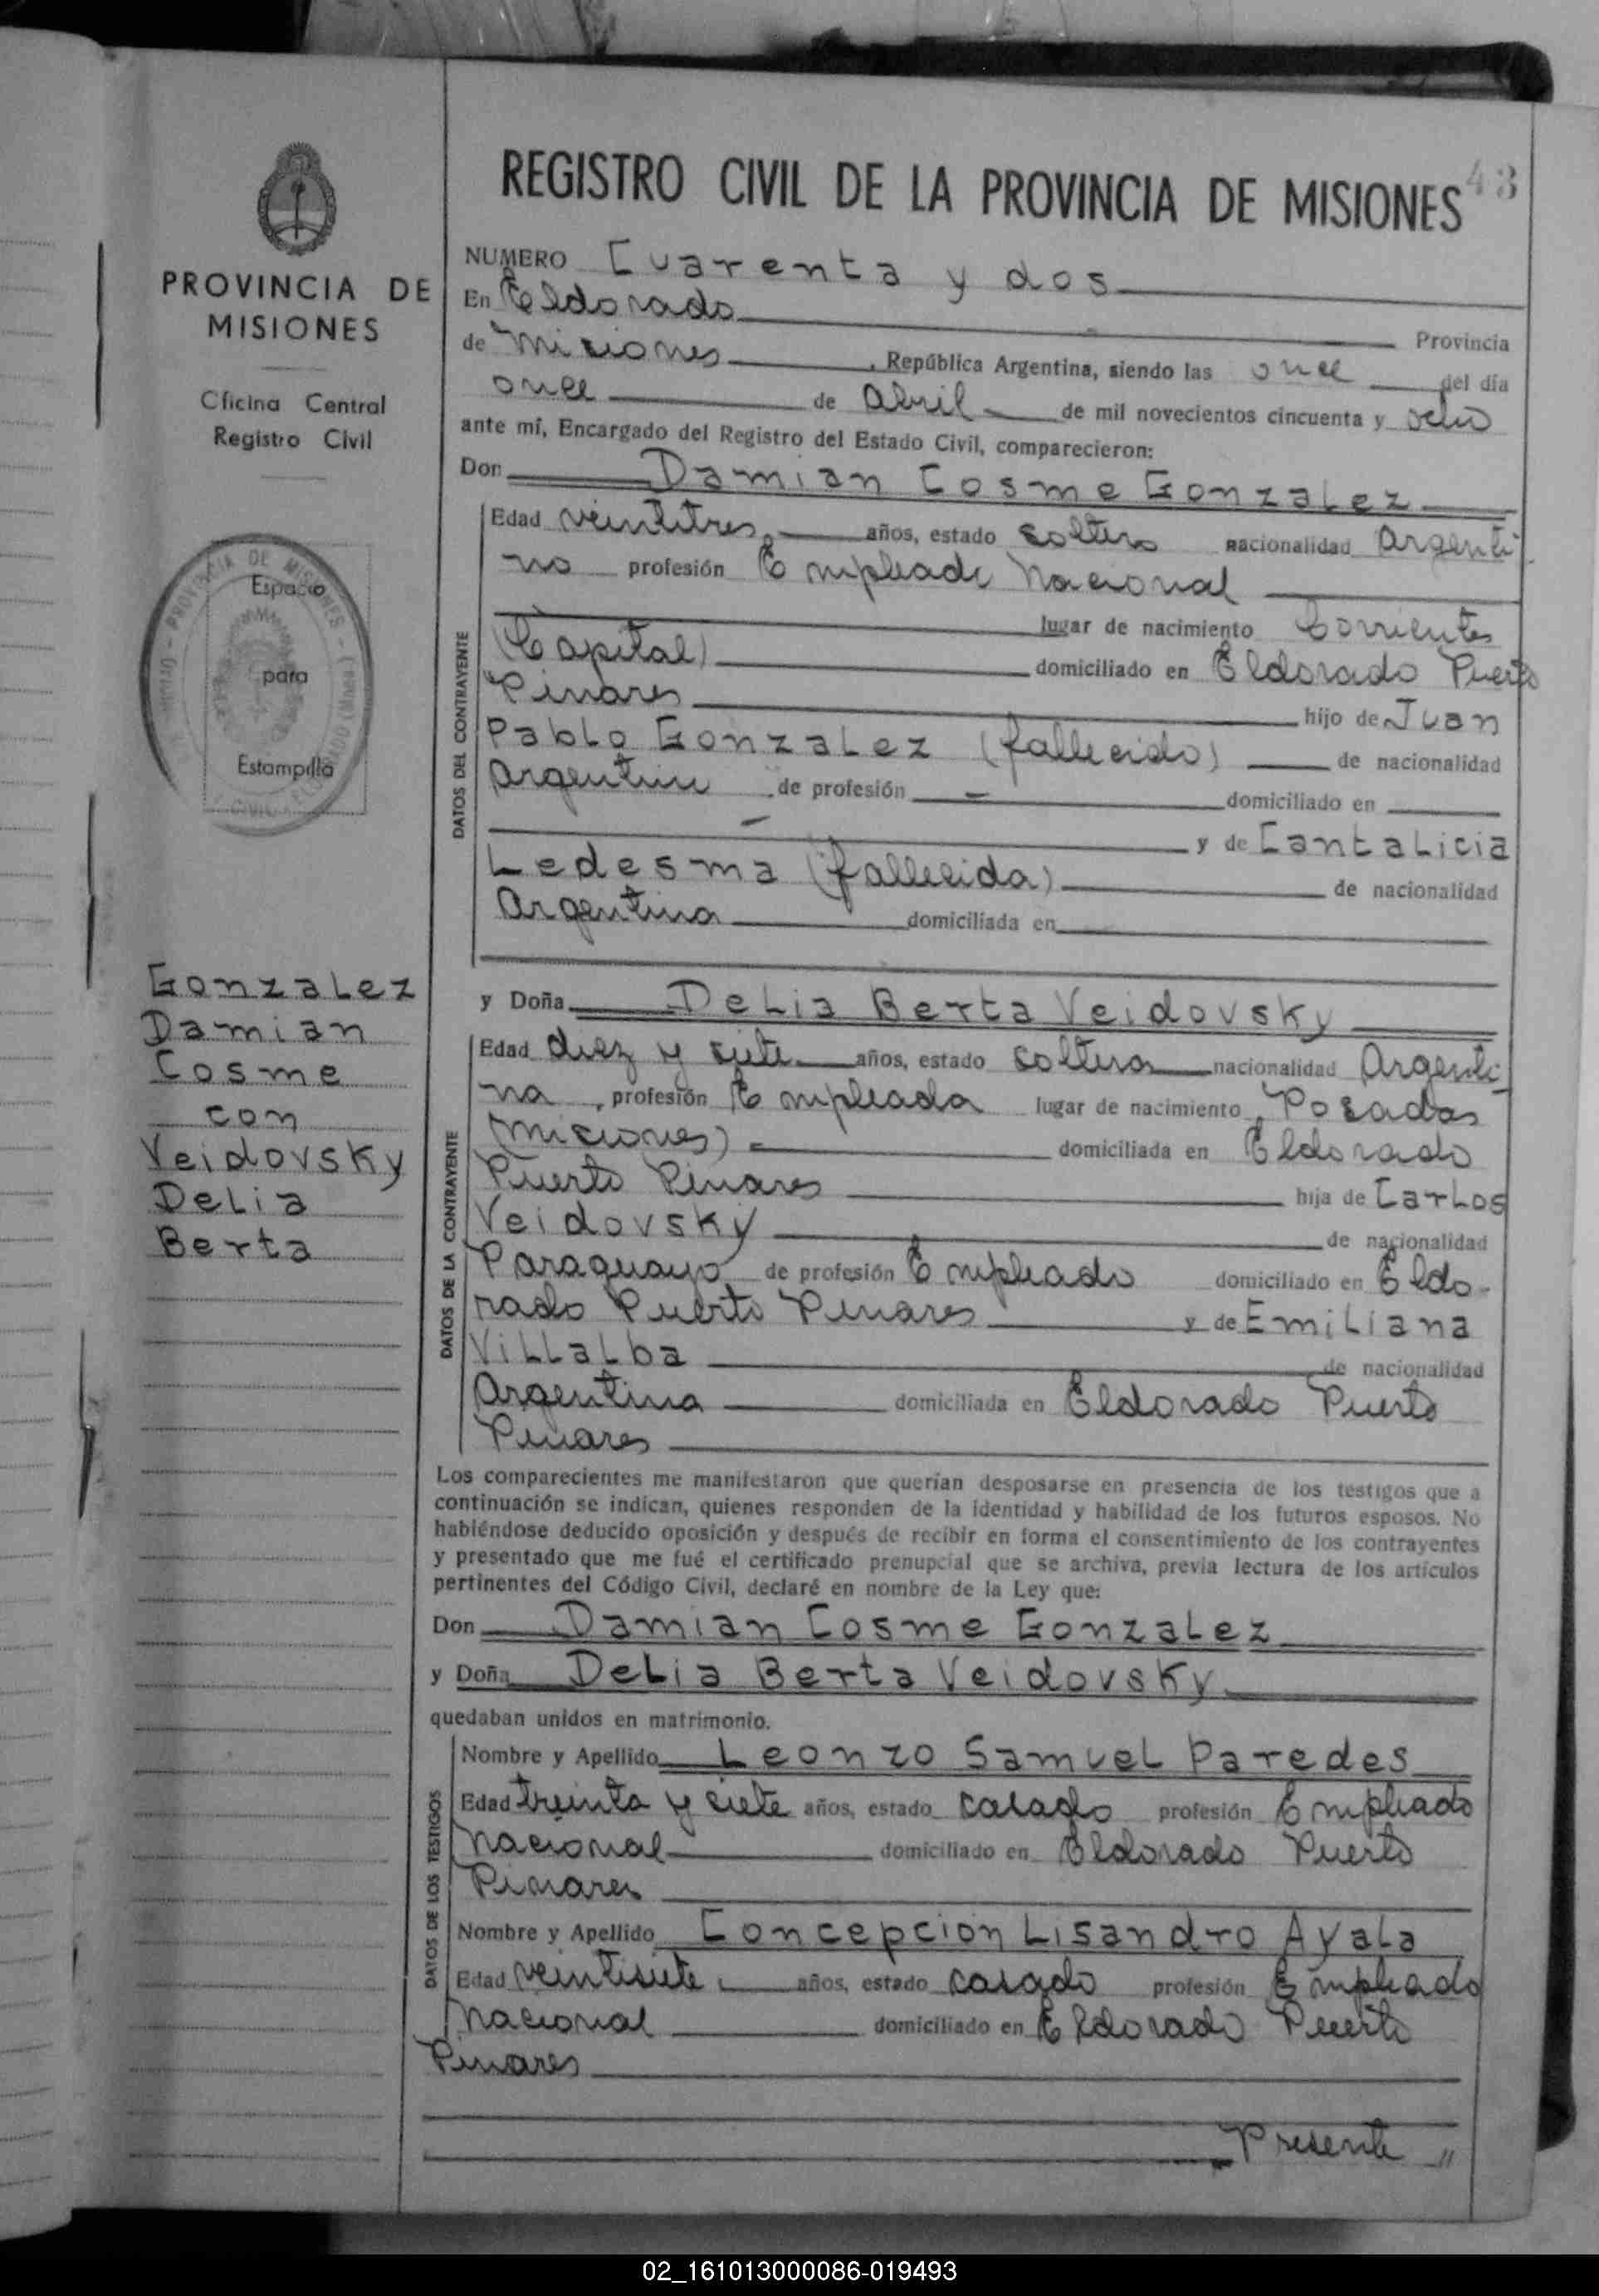 PROVINCIA DE
MISIONES
Oficina Central
Registro Civil
Espacio
para
Estampilla
Gonzalez
Damian
Cosme
con
Veidovsky
Delia
Berta
REGISTRO CIVIL DE LA PROVINCIA DE MISIONES 43
NUMERO Cuarenta y dos
En Eldorado Provincia
de Misiones, República Argentina, siendo las once del día
once de Abril de mil novecientos cincuenta y ocho
ante mí, Encargado del Registro del Estado Civil, comparecieron:
Don Damian Cosme Gonzalez
DATOS DEL CONTRAYENTE
Edad veintitres años, estado soltero nacionalidad Argenti
no profesión Empleado Nacional
lugar de nacimiento Corrientes
(Capital) domiciliado en Eldorado Puerto
Pinares hijo de Juan
Pablo Gonzalez (fallecido) de nacionalidad
Argentino de profesión — domiciliado en
— y de Cantalicia
Ledesma (fallecida) de nacionalidad
Argentina domiciliada en
y Doña Delia Berta Veidovsky
DATOS DE LA CONTRAYENTE
Edad diez y siete años, estado soltera nacionalidad Argenti
na, profesión Empleada lugar de nacimiento Posadas
(Misiones) domiciliada en Eldorado
Puerto Pinares hija de Carlos
Veidovsky de nacionalidad
Paraguayo de profesión Empleado domiciliado en Eldo-
rado Puerto Pinares y de Emiliana
Villalba de nacionalidad
Argentina domiciliada en Eldorado Puerto
Pinares
Los comparecientes me manifestaron que querían desposarse en presencia de los testigos que a
continuación se indican, quienes responden de la identidad y habilidad de los futuros esposos. No
habiéndose deducido oposición y después de recibir en forma el consentimiento de los contrayentes
y presentado que me fué el certificado prenupcial que se archiva, previa lectura de los artículos
pertinentes del Código Civil, declaré en nombre de la Ley que:
Don Damian Cosme Gonzalez
y Doña Delia Berta Veidovsky
quedaban unidos en matrimonio.
DATOS DE LOS TESTIGOS
Nombre y Apellido Leonzo Samuel Paredes
Edad treinta y siete años, estado casado profesión Empleado
Nacional domiciliado en Eldorado Puerto
Pinares
Nombre y Apellido Concepcion Lisandro Ayala
Edad veintisiete años, estado casado profesión Empleado
Nacional domiciliado en Eldorado Puerto
Pinares
Presente //
02_161013000086-019493